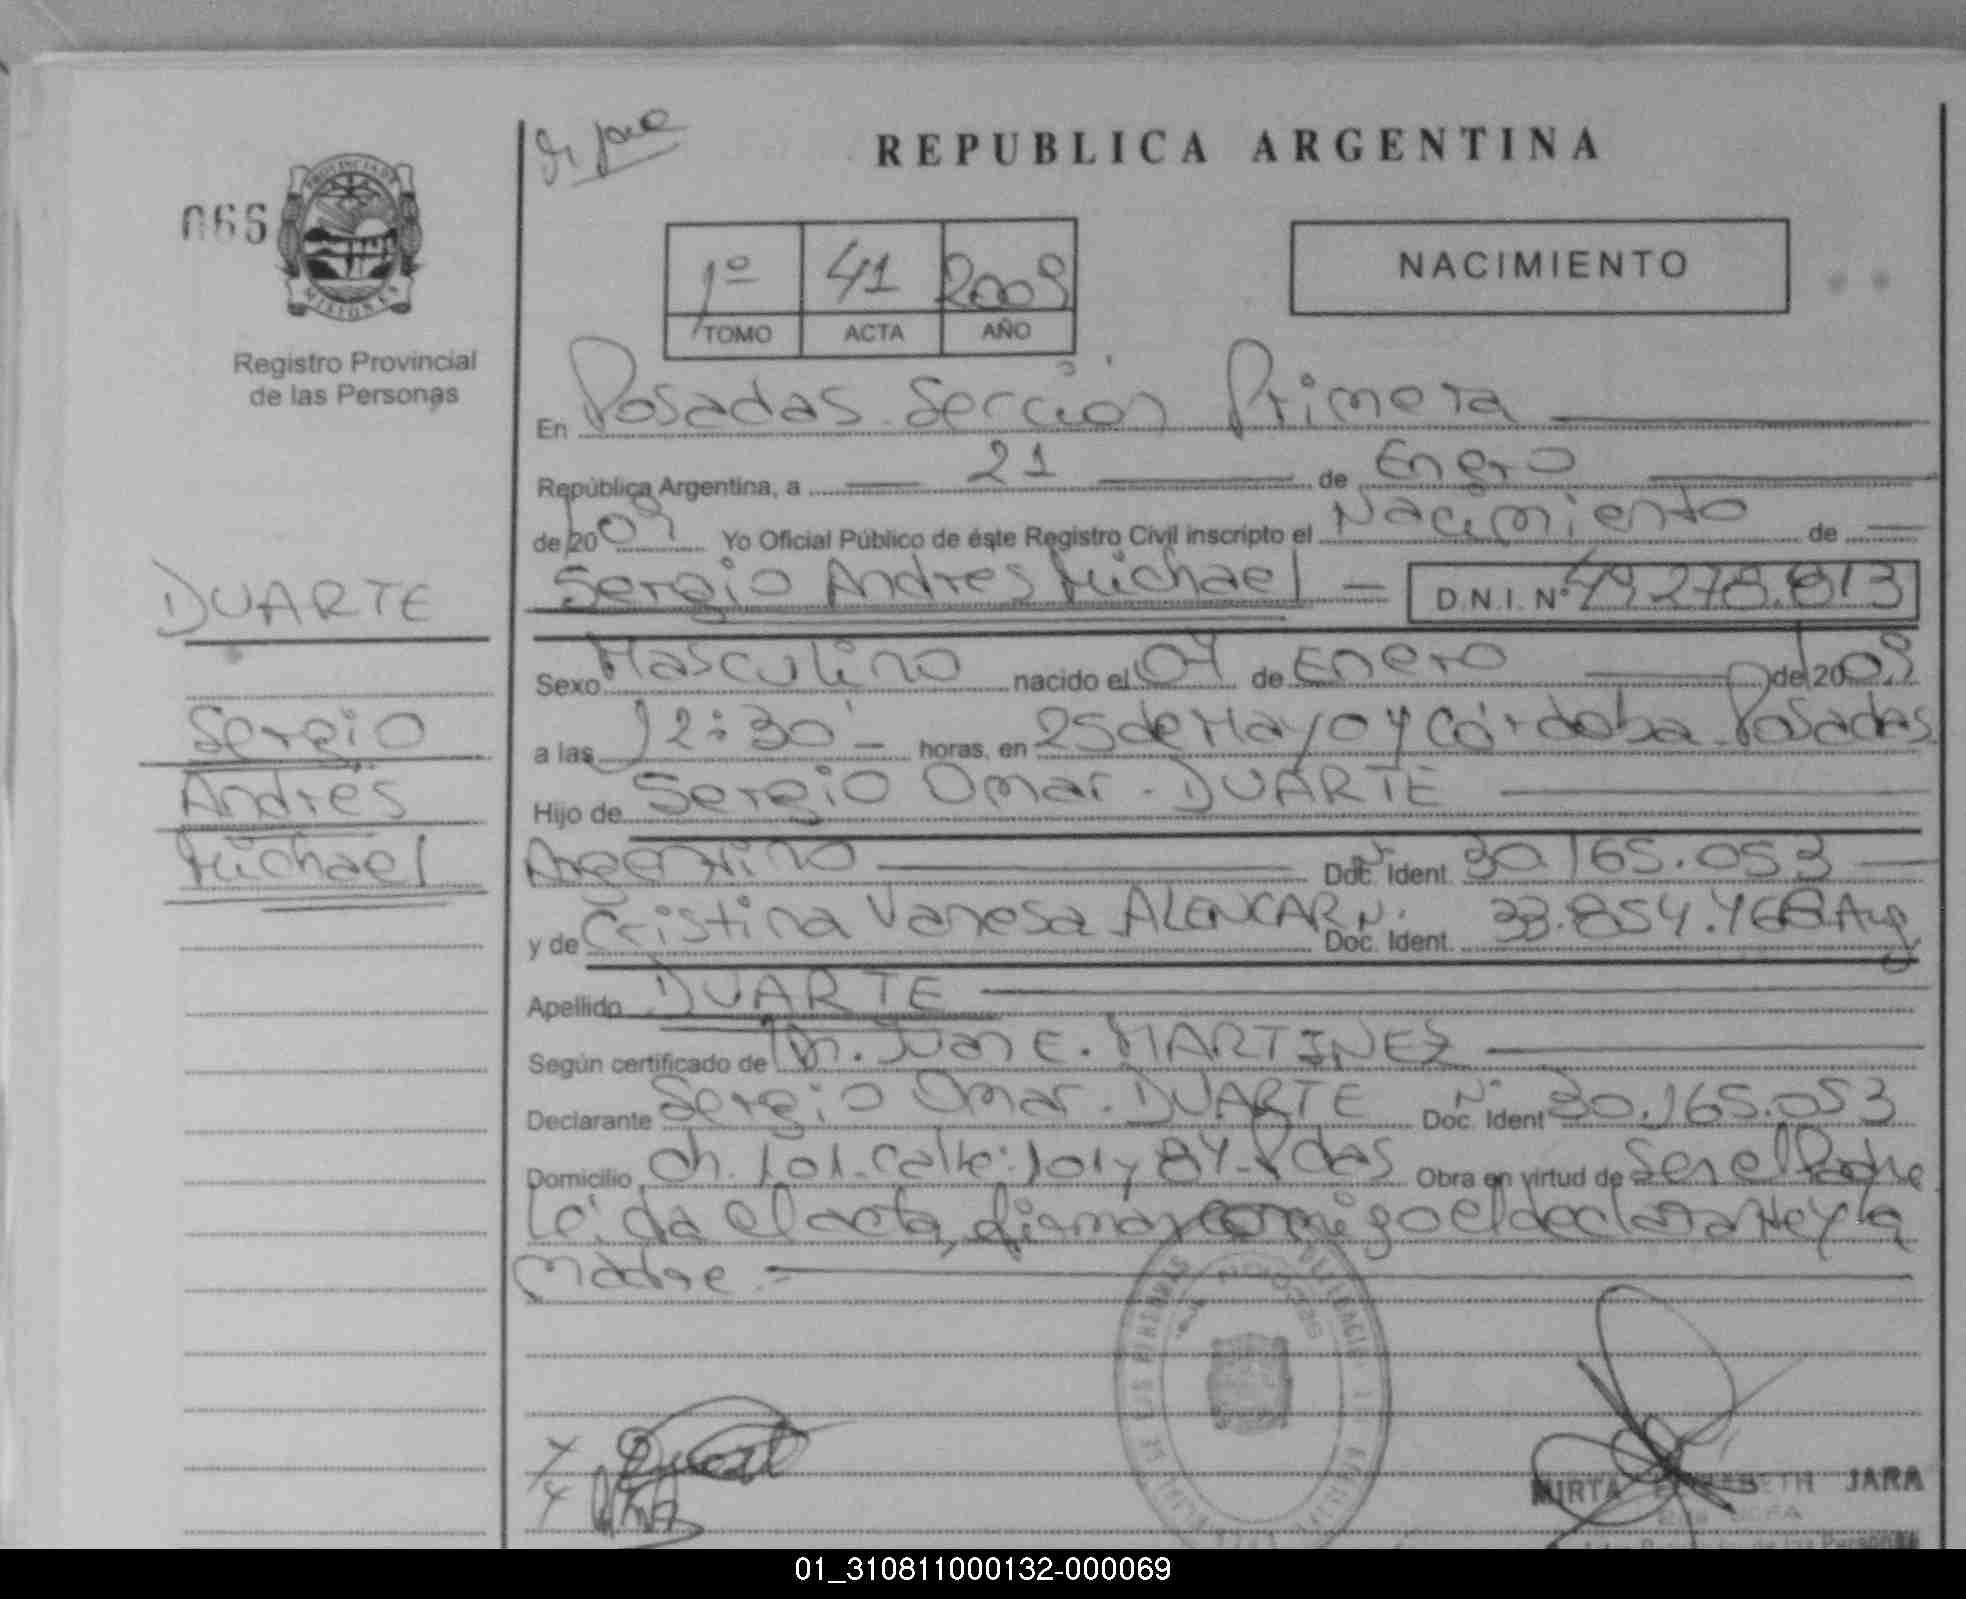 REPUBLICA ARGENTINA
066
PROVINCIA DE
MISIONES
Registro Provincial
de las Personas
1º 41 2009
TOMO ACTA AÑO
NACIMIENTO
En Posadas Sección Primera
República Argentina, a 21 de Enero
de 2009 Yo Oficial Público de éste Registro Civil inscripto el Nacimiento de
Sergio Andres Michael D.N.I. Nº 49.278.813
DUARTE
Sexo Masculino nacido el 04 de Enero de 2009
Sergio
a las 12:30 horas, en 25 de Mayo y Córdoba Posadas
Andrés
Hijo de Sergio Omar DUARTE
Michael
Argentino Nº Doc. Ident. 30.165.053
y de Cristina Vanesa ALENCAR Nº Doc. Ident. 33.854.468 Arg
Apellido DUARTE
Según certificado de Dr. Juan E. MARTINEZ
Declarante Sergio Omar DUARTE Nº Doc. Ident 30.165.053
Domicilio Ch. 101 Calle: 101 y 84 Pdas Obra en virtud de Ser el Padre
Leída el acta, firman conmigo el declarante y la
madre.-
MIRTA ELIZABETH JARA
01_310811000132-000069